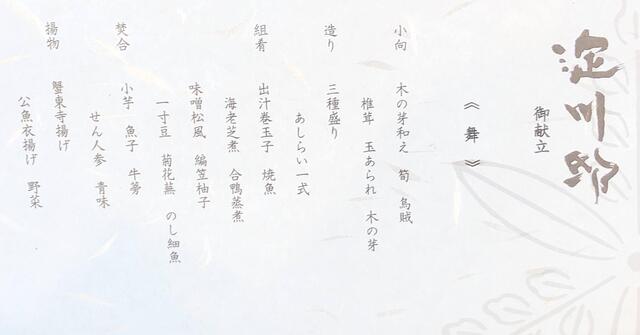 淀川邸
御献立
《 舞 》
小向 木の芽和え 筍 烏賊
椎茸 玉あられ 木の芽
造り 三種盛り
あしらい一式
組肴 出汁巻玉子 焼魚
海老芝煮 合鴨蒸煮
味噌松風 編笠柚子
一寸豆 菊花蕪 のし細魚
焚合 小芋 魚子 牛蒡
せん人参 青味
揚物 蟹東寺揚げ
公魚衣揚げ 野菜